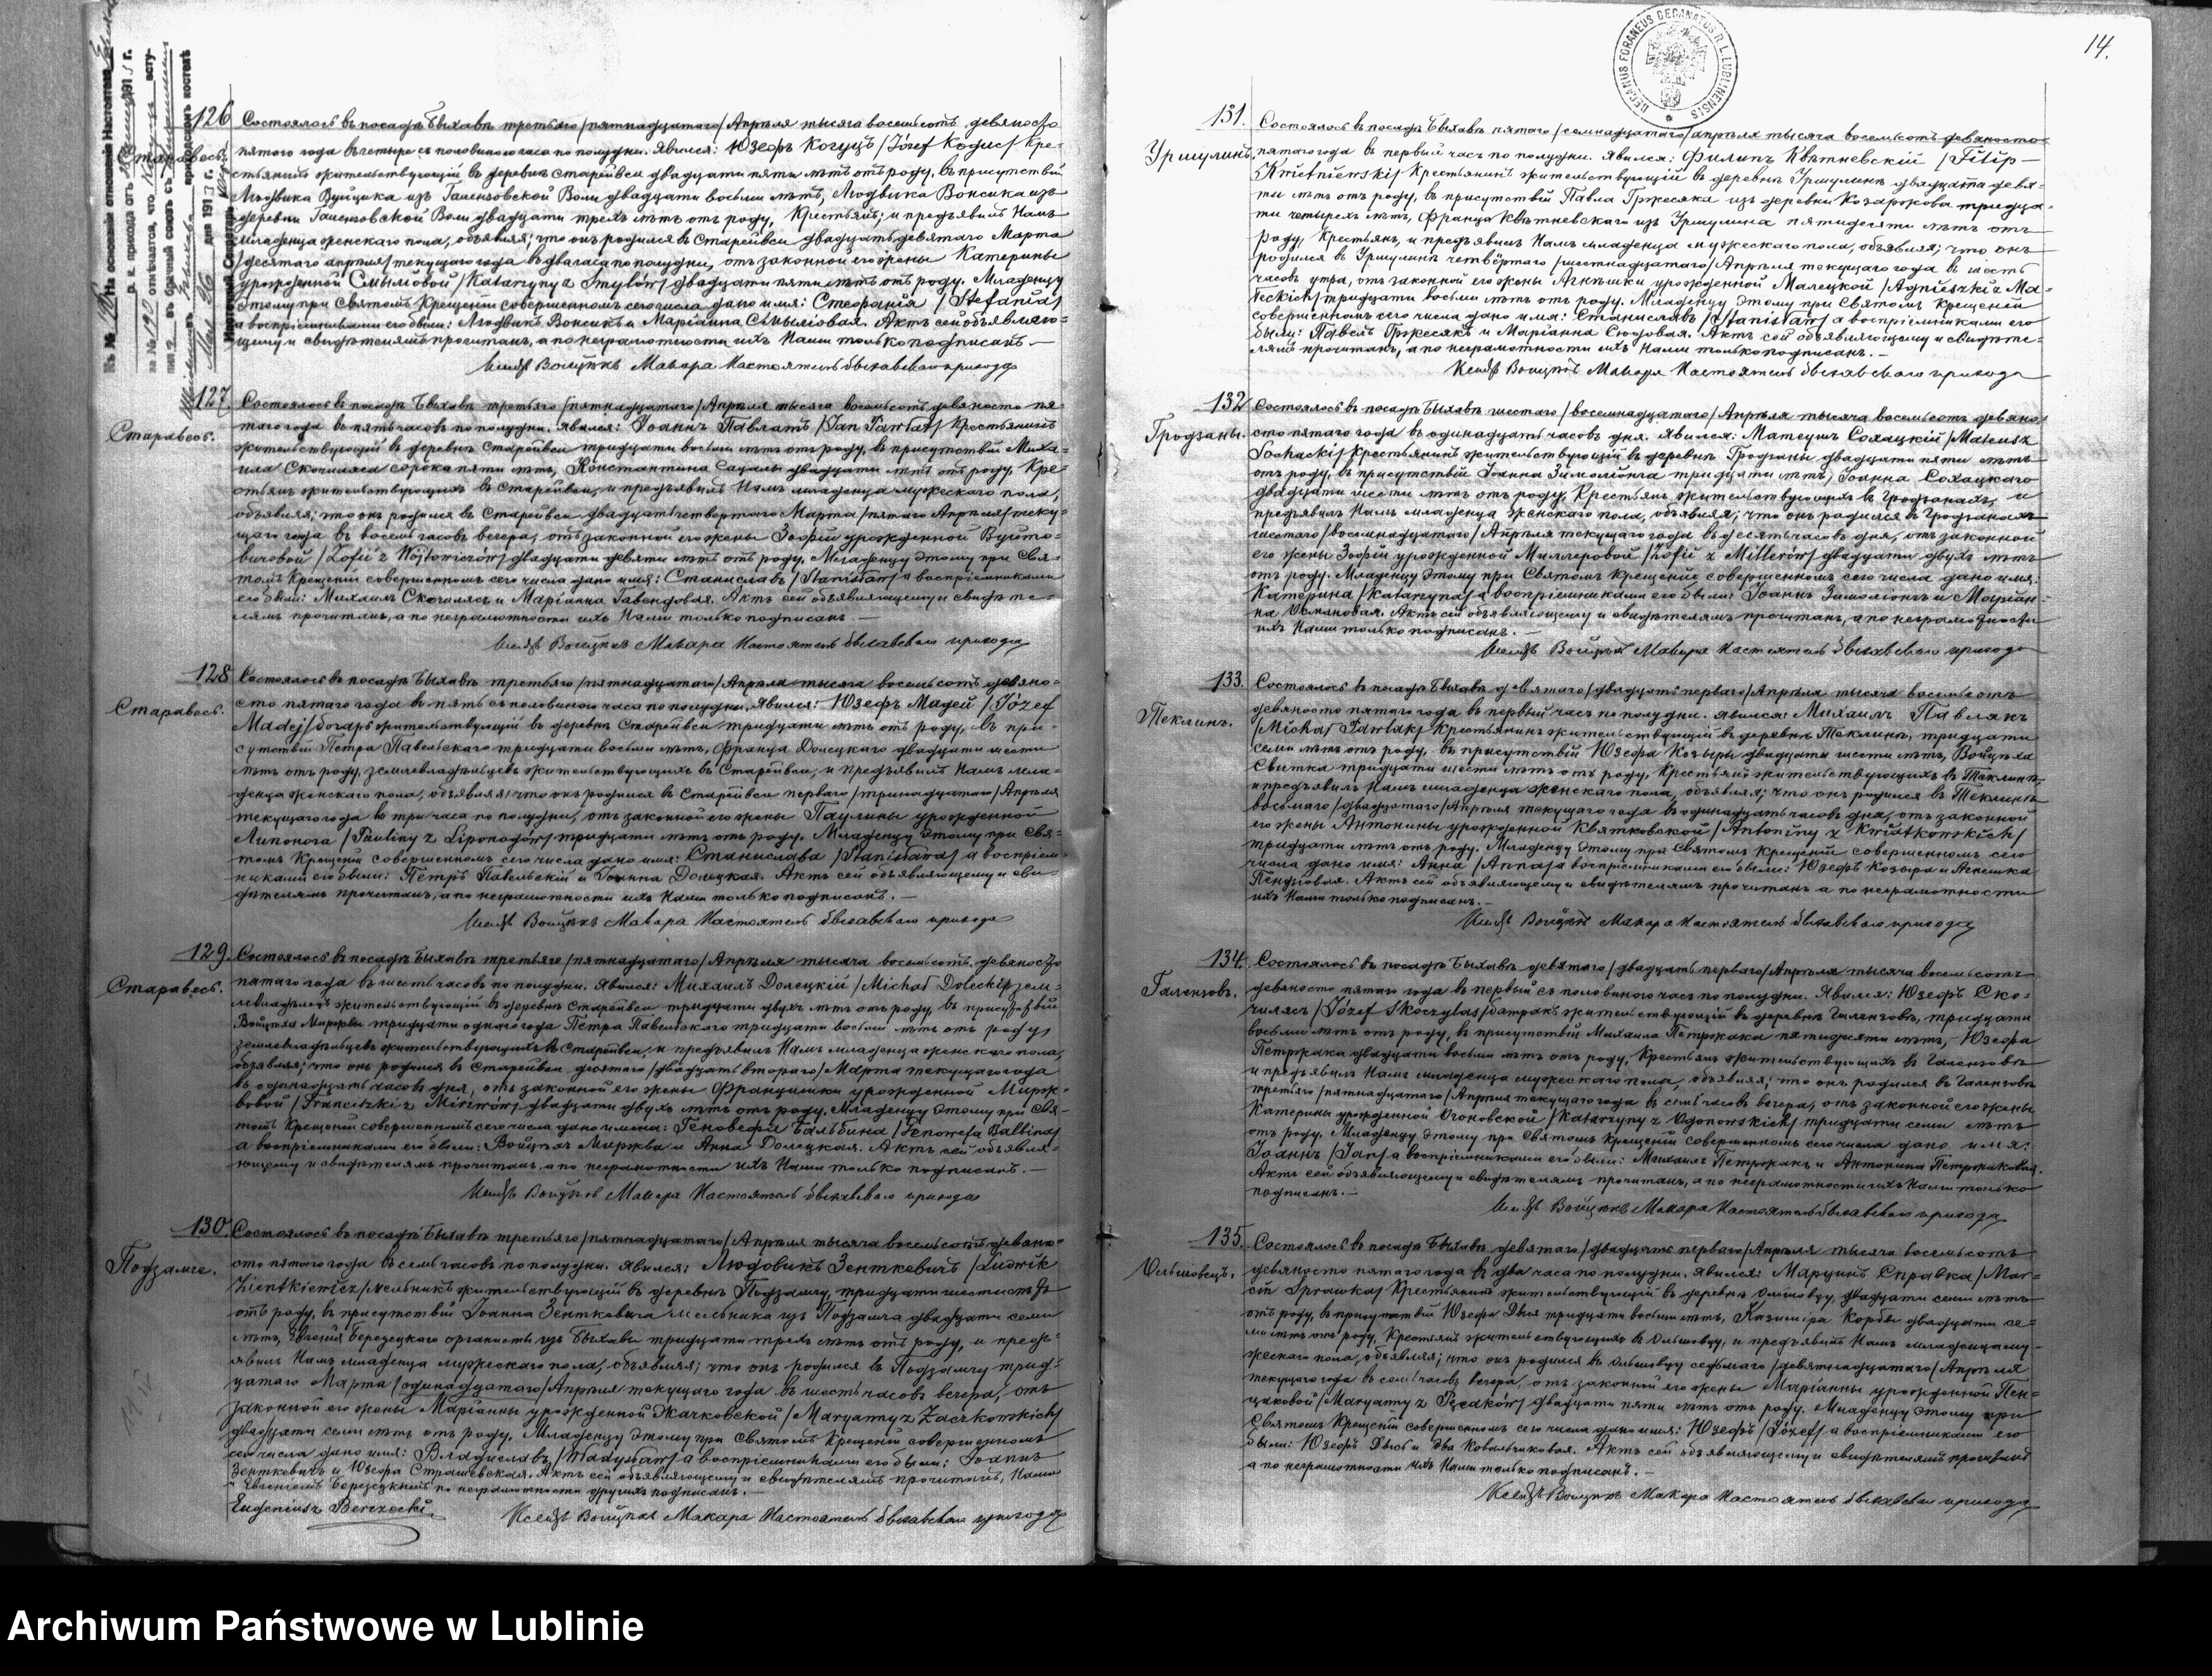 126
Старавесь.
Состоялось въ посадѣ Быхавѣ третьяго /пятнадцатаго/ Апрѣля тысяча восемьсотъ девяносто
пятаго года въ четыре съ половиною часа по полудни. Явился: Юзефъ Когуцъ /Józef Koguc/ Кре-
стьянинъ жительствующій въ деревнѣ Старейвси двадцати пяти лѣтъ отъ роду, въ присутствіи
Людвика Вуйцика изъ Галензовской Воли двадцати восьми лѣтъ, Людвика Вонсика изъ
деревни Галензовской Воли двадцати трехъ лѣтъ отъ роду, Крестьянъ; и предъявилъ Намъ
младенца женскаго пола, объявляя; что онъ родился въ Старейвси двадцать девятаго Марта
/десятаго апрѣля/ текущаго года въ два часа по полудни, отъ законной его жены Катерины
урожденной Смыловой /Katarzyny z Smyłów/ двадцати пяти лѣтъ отъ роду. Младенцу
этому при Святомъ Крещеніи совершенномъ сего числа дано имя: Стефанія /Stefania/
а воспріемниками его были: Людвикъ Вонсикъ и Маріанна Смылова. Актъ сей объявляю-
щему и свидѣтелямъ прочитанъ, а по неграмотности ихъ Нами только подписанъ.—
Ксендзъ Войцѣхъ Макара Настоятель Быхавскаго прихода
127.
Старавесь.
Состоялось въ посадѣ Быхавѣ третьяго /пятнадцатаго/ Апрѣля тысяча восемьсотъ девяносто пя-
таго года въ пять часовъ по полудни. Явился: Іоаннъ Павлатъ /Jan Pawłat/ Крестьянинъ
жительствующій въ деревнѣ Старейвси тридцати восьми лѣтъ отъ роду, въ присутствіи Миха-
ила Скочиляса сорока пяти лѣтъ, Константина двадцати лѣтъ отъ роду, Кре-
стьянъ жительствующихъ въ Старейвси, и предъявилъ Намъ младенца мужескаго пола,
объявляя; что онъ родился въ Старейвси двадцать четвертаго Марта /пятаго Апрѣля/ теку-
щаго года въ восемь часовъ вечера, отъ законной его жены Зофіи урожденной Вуйто-
вичовой /Zofii z Wójtowiczów/ двадцати девяти лѣтъ отъ роду. Младенцу этому при Свя-
томъ Крещеніи совершенномъ сего числа дано имя: Станиславъ /Stanisław/ а воспріемниками
его были: Михаилъ Скочилясъ и Маріанна Гавендовая. Актъ сей объявляющему и свидѣте-
лямъ прочитанъ, а по неграмотности ихъ Нами только подписанъ.—
Ксендзъ Войцѣхъ Макара Настоятель Быхавскаго прихода
128
Старавесь.
Состоялось въ посадѣ Быхавѣ третьяго /пятнадцатаго/ Апрѣля тысяча восемьсотъ девяно-
сто пятаго года въ пять съ половиною часа по полудни. Явился: Юзефъ Мадей /Józef
Madej/ жительствующій въ деревнѣ Старейвси тридцати лѣтъ отъ роду, въ при-
сутствіи Петра Павельскаго тридцати восьми лѣтъ, Франца Долецкаго двадцати шести
лѣтъ отъ роду, землевладѣльцевъ жительствующихъ въ Старейвси, и предъявилъ Намъ мла-
денца женскаго пола, объявляя; что онъ родился въ Старейвси перваго /тринадцатаго/ Апрѣля
текущаго года въ три часа по полудни, отъ законной его жены Паулины урожденной
Липонога /Pauliny z Liponogów/ тридцати лѣтъ отъ роду. Младенцу этому при Свя-
томъ Крещеніи совершенномъ сего числа дано имя: Станислава /Stanisława/ а воспріем-
никами его были: Петръ Павельскій и Іоанна Долецкая. Актъ сей объявляющему и сви-
дѣтелямъ прочитанъ, а по неграмотности ихъ Нами только подписанъ.—
Ксендзъ Войцѣхъ Макара Настоятель Быхавскаго прихода
129.
Старавесь.
Состоялось въ посадѣ Быхавѣ третьяго /пятнадцатаго/ Апрѣля тысяча восемьсотъ девяносто
пятаго года въ шесть часовъ по полудни. Явился: Михаилъ Долецкій /Michał Dolecki/ зем-
левладѣлецъ жительствующій въ деревнѣ Старейвси тридцати двухъ лѣтъ отъ роду, въ присутствіи
Войцѣха Миржвы тридцати одного года Петра Павельскаго тридцати восьми лѣтъ отъ роду,
землевладѣльцевъ жительствующихъ въ Старейвси, и предъявилъ Намъ младенца женскаго пола,
объявляя; что онъ родился въ Старейвси десятаго /двадцать втораго/ Марта текущаго года
въ одинадцать часовъ дня, отъ законной его жены Францишки урожденной Мирж-
вовой /Franciszki z Mirzwów/ двадцати двухъ лѣтъ отъ роду. Младенцу этому при Свя-
томъ Крещеніи совершенномъ сего числа дано имена: Геновефа Бальбина /Genowefa Balbina/
а воспріемниками его были: Войцѣхъ Миржва и Анна Долецкая. Актъ сей объявля-
ющему и свидѣтелямъ прочитанъ, а по неграмотности ихъ Нами только подписанъ.—
Ксендзъ Войцѣхъ Макара Настоятель Быхавскаго прихода
130.
Подзамче.
Состоялось въ посадѣ Быхавѣ третьяго /пятнадцатаго/ Апрѣля тысяча восемьсотъ девяно-
сто пятаго года въ семь часовъ по полудни. Явился: Людовикъ Зенткевичъ /Ludwik
Zientkiewicz/ мельникъ жительствующій въ деревнѣ Подзамчу, тридцати шести лѣтъ
отъ роду, въ присутствіи Іоанна Зенткевича мельника изъ Подзамча двадцати семи
лѣтъ, Евгенія Березецкаго органисты изъ Быхавы тридцати трехъ лѣтъ отъ роду, и предъ-
явилъ Намъ младенца мужескаго пола, объявляя; что онъ родился въ Подзамчу трид-
цатаго Марта /одинадцатаго/ Апрѣля текущаго года въ шесть часовъ вечера, отъ
законной его жены Маріанны урожденной Жачковской /Maryanny z Żaczkowskich/
двадцати семи лѣтъ отъ роду. Младенцу этому при Святомъ Крещеніи совершенномъ
сего числа дано имя: Владиславъ /Władysław/ а воспріемниками его были: Іоаннъ
Зенткевичъ и Юзефа Страшевская. Актъ сей объявляющему и свидѣтелямъ прочитанъ, Нами
и Евгеніемъ Березецкимъ по неграмотности другихъ подписанъ.—
Eugeniusz Berezecki
Ксендзъ Войцѣхъ Макара Настоятель Быхавскаго прихода
14.
DECANUS FORANEUS DECANATUS R. L. LUBLINENSIS
131.
Уршулинъ.
Состоялось въ посадѣ Быхавѣ пятаго /семнадцатаго/ апрѣля тысяча восемьсотъ девяносто
пятаго года въ первый часъ по полудни. Явился: Филипъ Квѣтневскій /Filip
Kwietniewski/ Крестьянинъ жительствующій въ деревнѣ Уршулинѣ двадцати девя-
ти лѣтъ отъ роду, въ присутствіи Павла Гржесяка изъ деревни Козарокова тридца-
ти четырехъ лѣтъ, Франца Квѣтневскаго изъ Уршулина пятидесяти лѣтъ отъ
роду, Крестьянъ, и предъявилъ Намъ младенца мужескаго пола, объявляя; что онъ
родился въ Уршулинѣ четвёртаго /шестнадцатаго/ Апрѣля текущаго года въ шесть
часовъ утра, отъ законной его жены Агнѣшки урожденной Малецкой /Agnieszki z Ma-
łeckich/ тридцати восьми лѣтъ отъ роду. Младенцу этому при Святомъ Крещеніи
совершенномъ сего числа дано имя: Станиславъ /Stanisław/ а воспріемниками его
были: Павелъ Гржесякъ и Маріанна Сюдовая. Актъ сей объявляющему и свидѣте-
лямъ прочитанъ, а по неграмотности ихъ Нами только подписанъ.—
Ксендзъ Войцѣхъ Макара Настоятель Быхавскаго прихода
132
Гродзаны.
Состоялось въ посадѣ Быхавѣ шестаго /восемнадцатаго/ Апрѣля тысяча восемьсотъ девяно-
сто пятаго года въ одинадцать часовъ дня. Явился: Матеушъ Сохацкій /Mateusz
Sochacki/ Крестьянинъ жительствующій въ деревнѣ Гродзаны двадцати пяти лѣтъ
отъ роду, въ присутствіи Іоанна Зимолionга тридцати лѣтъ, Іоанна Сохацкаго
двадцати шести лѣтъ отъ роду, Крестьянъ жительствующихъ въ Гродзанахъ, и
предъявилъ Намъ младенца женскаго пола, объявляя; что онъ родился въ Гродзанахъ
шестаго /восемнадцатаго/ Апрѣля текущаго года въ десять часовъ дня, отъ законной
его жены Зофіи урожденной Миллеровой /Zofii z Millerów/ двадцати двухъ лѣтъ
отъ роду. Младенцу этому при Святомъ Крещеніе совершенномъ сего числа дано имя:
Катерина /Katarzyna/ а воспріемниками его были: Іоаннъ и Маріан-
на Актъ сей объявляющему и свидѣтелямъ прочитанъ, а по неграмотности
ихъ Нами только подписанъ.—
Ксендзъ Войцѣхъ Макара Настоятель Быхавскаго прихода
133.
Теклинъ.
Состоялось въ посадѣ Быхавѣ девятаго /двадцать перваго/ Апрѣля тысяча восемьсотъ
девяносто пятаго года въ первый часъ по полудни. Явился: Михаилъ Павлякъ
/Michał Pawlak/ Крестьянинъ жительствующій въ деревнѣ Теклинѣ, тридцати
семи лѣтъ отъ роду, въ присутствіи Юзефа Козыры двадцати шести лѣтъ, Войцѣха
Свитка тридцати шести лѣтъ отъ роду, Крестьянъ жительствующихъ въ Теклинѣ,
и предъявилъ Намъ младенца женскаго пола, объявляя; что онъ родился въ Теклинѣ
восьмаго /двадцатаго/ Апрѣля текущаго года въ одинадцать часовъ дня, отъ законной
его жены Антонины урожденной Квятковской /Antoniny z Kwiatkowskich/
тридцати лѣтъ отъ роду. Младенцу этому при Святомъ Крещеніи совершенномъ сего
числа дано имя: Анна /Anna/ а воспріемниками его были: Юзефъ Козыра и Агнешка
Пендзовая. Актъ сей объявляющему и свидѣтелямъ прочитанъ а по неграмотности
ихъ Нами только подписанъ.—
Ксендзъ Войцѣхъ Макара Настоятель Быхавскаго прихода
134.
Галензовъ.
Состоялось въ посадѣ Быхавѣ девятаго /двадцать перваго/ Апрѣля тысяча восемьсотъ
девяносто пятаго года въ первый съ половиною часъ по полудни. Явился: Юзефъ Ско-
чилясъ /Józef Skoczylas/ батракъ жительствующій въ деревнѣ Галензовѣ, тридцати
восьми лѣтъ отъ роду, въ присутствіи Михаила Петржака пятидесяти лѣтъ, Юзефа
Петржака двадцати восьми лѣтъ отъ роду, Крестьянъ жительствующихъ въ Галензовѣ
и предъявилъ Намъ младенца мужескаго пола, объявляя; что онъ родился въ Галензовѣ
третьяго /пятнадцатаго/ Апрѣля текущаго года въ семь часовъ вечера, отъ законной его жены
Катерины урожденной Огоновской /Katarzyny z Ogonowskich/ тридцати семи лѣтъ
отъ роду. Младенцу этому при Святомъ Крещеніи совершенномъ сего числа дано имя:
Іоаннъ /Jan/ а воспріемниками его были: Михаилъ Петржакъ и Антонина Петржаковая.
Актъ сей объявляющему и свидѣтелямъ прочитанъ, а по неграмотности ихъ Нами только
подписанъ.—
Ксендзъ Войцѣхъ Макара Настоятель Быхавскаго прихода
135.
Ольшовецъ.
Состоялось въ посадѣ Быхавѣ девятаго /двадцать перваго/ Апрѣля тысяча восемьсотъ
девяносто пятаго года въ два часа по полудни. Явился: Марцинъ Справка /Mar-
cin Sprawka/ Крестьянинъ жительствующій въ деревнѣ Ольшовцу, двадцати семи лѣтъ
отъ роду, въ присутствіи Юзефа тридцати восьми лѣтъ, Казимира Корбы двадцати се-
ми лѣтъ отъ роду, Крестьянъ жительствующихъ въ Ольшовцу, и предъявилъ Намъ младенца му-
жескаго пола, объявляя; что онъ родился въ Ольшовцу седьмаго /девятнадцатаго/ Апрѣля
текущаго года въ семь часовъ вечера, отъ законной его жены Маріанны урожденной Пен-
цаковой /Maryanny z Pęcaków/ двадцати пяти лѣтъ отъ роду. Младенцу этому при
Святомъ Крещеніи совершенномъ сего числа дано имя: Юзефъ /Józef/ а воспріемниками его
были: Юзефъ и Ева Ковальчиковая. Актъ сей объявляющему и свидѣтелямъ прочитанъ
а по неграмотности ихъ Нами только подписанъ.—
Ксендзъ Войцѣхъ Макара Настоятель Быхавскаго прихода
Archiwum Państwowe w Lublinie